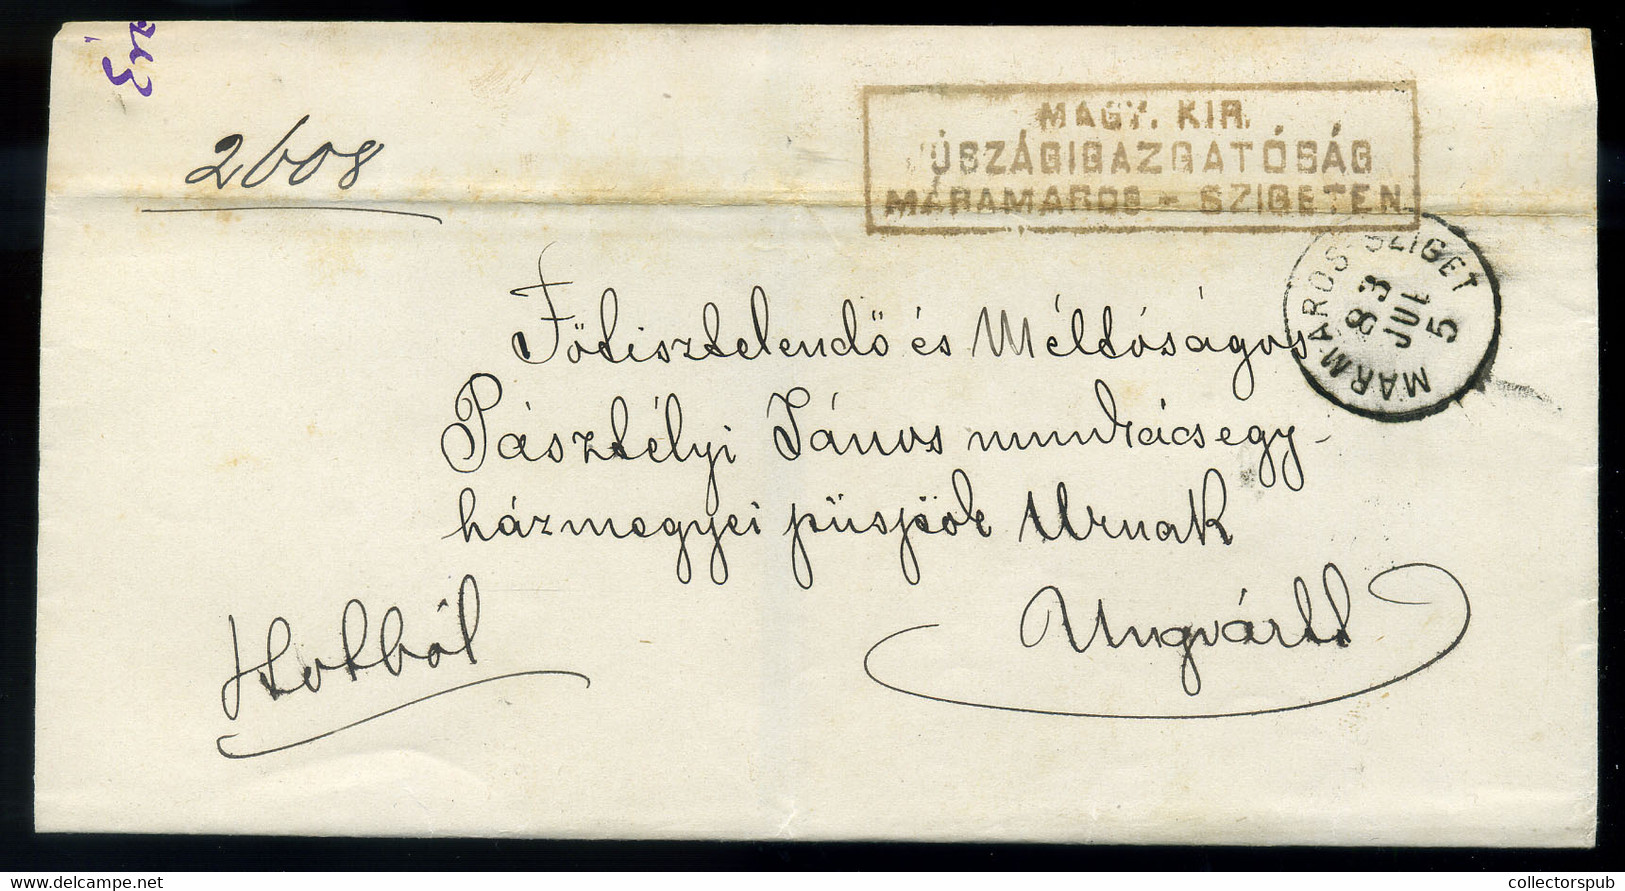 2608
MAGY. KIR.
JÓSZÁGIGAZGATÓSÁG
MÁRAMAROS - SZIGETEN
MARMAROS-SZIGET
83
JUL
5
Főtisztelendő és Méltóságos
Pásztélyi János munkácsegy-
házmegyei püspök Urnak
Hivatalból
Ungvártt
collectorspub.com